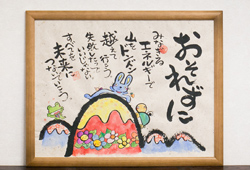 おそれずに
みなぎる
エネルギーで
山をドンドン
越えて行こう
失敗したって
いいじゃないか
すべてを未来に
つなげていこう